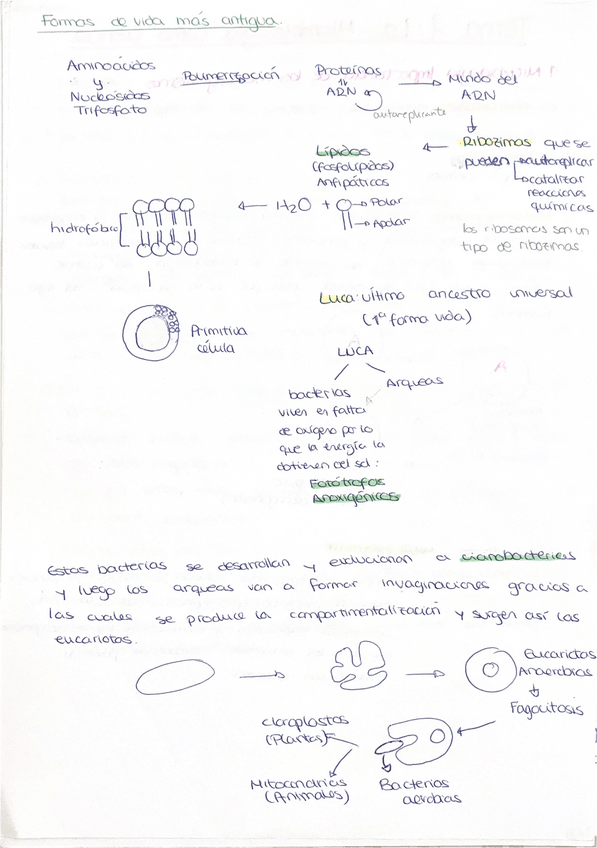 Formas de vida más antigua.
Aminoácidos
y
Nucleósidos
Trifosfato
Polimerización
Proteínas
ARN
autoreplicante
Mundo del
ARN
Ribozimas que se
pueden autoreplicar
catalizar
reacciones
químicas
los ribosomas son un
tipo de ribozimas
Lípidos
(fosfolípidos)
Anfipáticos
H2O + Polar
Apolar
hidrofóbico
Primitiva
célula
Luca: Último ancestro universal
(1ª forma vida)
LUCA
bacterias
Arqueas
viven en falta
de oxígeno por lo
que la energía la
obtienen del sol:
Fotótrofos
Anoxigénicos
Estas bacterias se desarrollan y evolucionan a cianobacterias
y luego las arqueas van a formar invaginaciones gracias a
las cuales se produce la compartimentalización y surgen así las
eucariotas.
Eucariotas
Anaerobias
Fagocitosis
cloroplastos
(Plantas)
Mitocondrias
(Animales)
Bacterias
aerobias